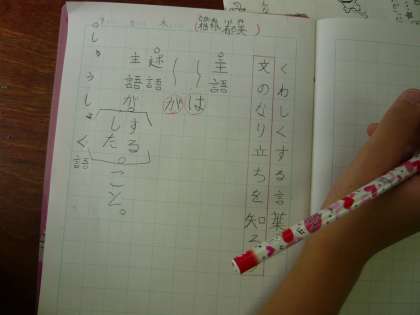 くわしくする言葉
文のなり立ちを知る
主語
〜は
〜が
述語
主語が
する
した
。こと。
しゅうしょく語